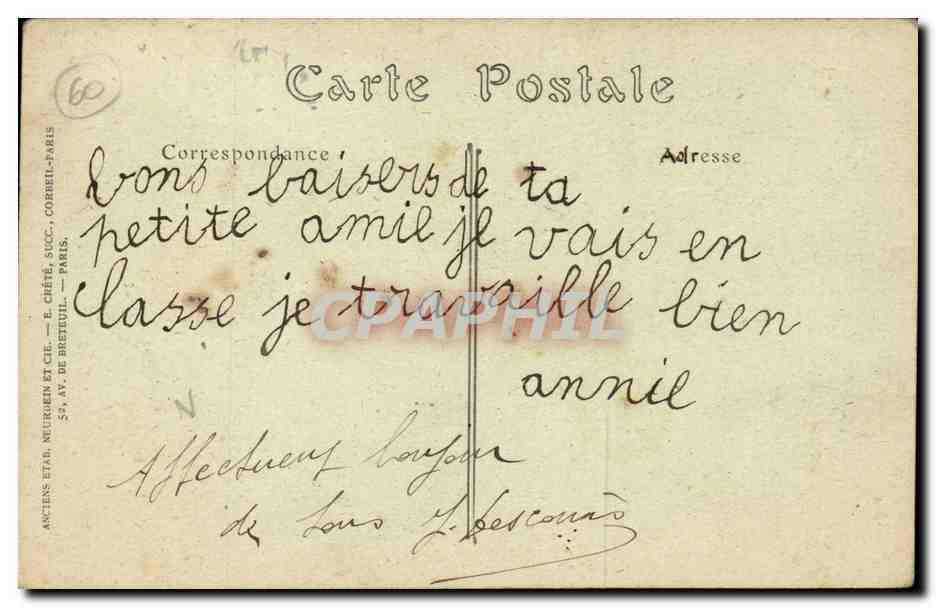 60
Carte Postale
Correspondance
Adresse
bons baisers de ta
petite amie je vais en
classe je travaille bien
annie
Affectueux bonjour
de tous
CPAPHIL
ANCIENS ETAB. NEURDEIN ET CIE. — E. CRÉTÉ, SUCC., CORBEIL-PARIS
52, AV. DE BRETEUIL. — PARIS.